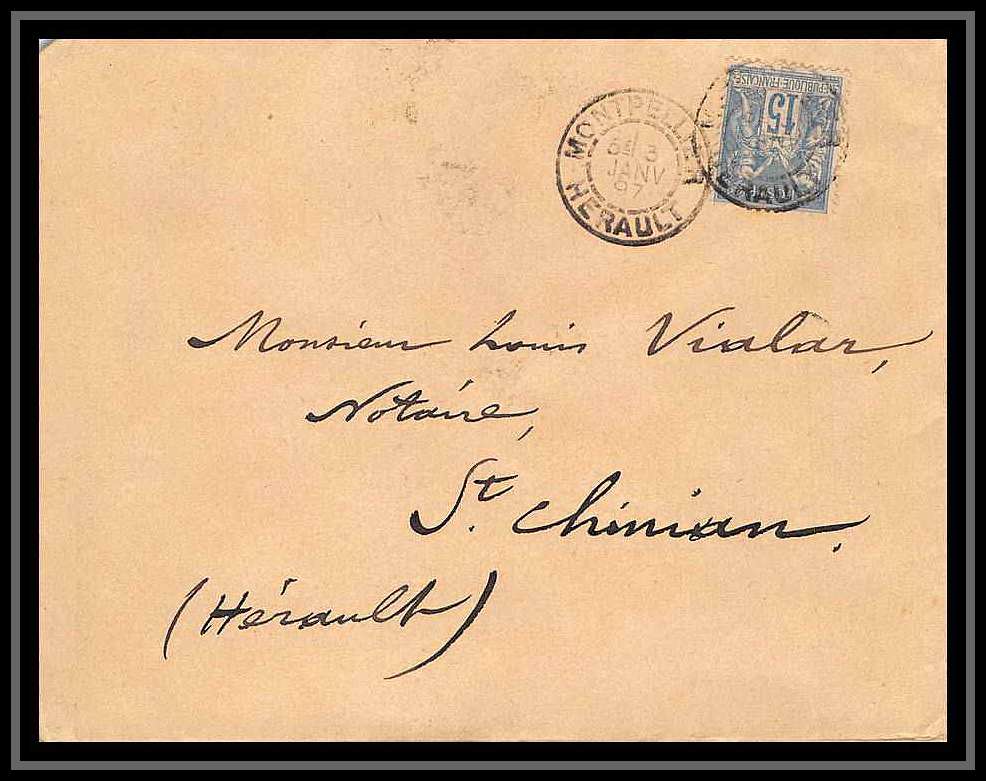 MONTPELLIER
5E 3
JANV
97
HERAULT
REPUBLIQUE FRANÇAISE
15
HERAULT
Monsieur Louis Vialar,
Notaire,
St. Chinian.
(Hérault)